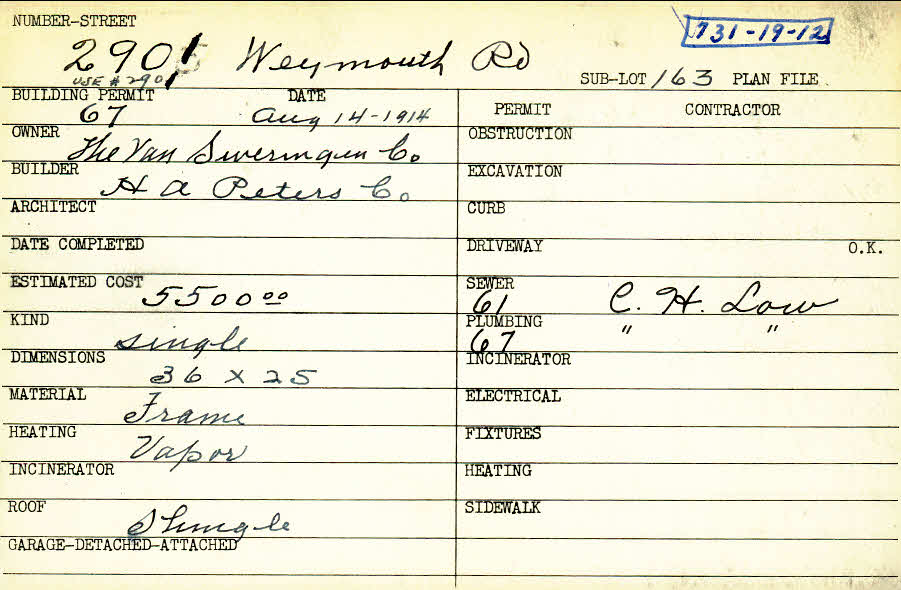 NUMBER-STREET
731-19-12
2901 Weymouth Rd
USE # 290
SUB-LOT 163 PLAN FILE
BUILDING PERMIT DATE
67 Aug 14-1914
PERMIT CONTRACTOR
OWNER The Van Sweringen Co.
OBSTRUCTION
BUILDER H A Peters Co.
EXCAVATION
ARCHITECT
CURB
DATE COMPLETED
DRIVEWAY O.K.
ESTIMATED COST 5500 00
SEWER
61 C. H. Low
KIND single
PLUMBING " "
67
DIMENSIONS 36 x 25
INCINERATOR
MATERIAL Frame
ELECTRICAL
HEATING Vapor
FIXTURES
INCINERATOR
HEATING
ROOF Shingle
SIDEWALK
GARAGE-DETACHED-ATTACHED